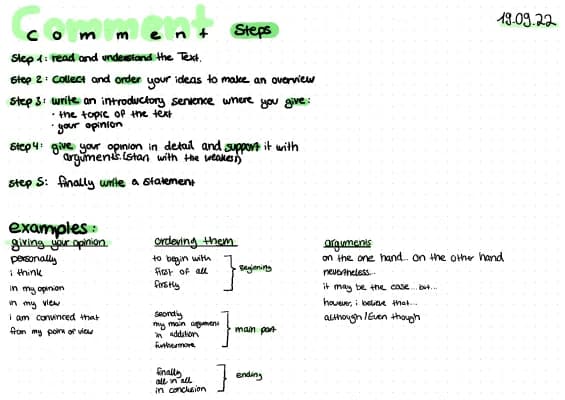 Comment
Comment Steps
19.09.22
Step 1: read and understand the Text.
Step 2: Collect and order your ideas to make an overview
Step 3: write an introductory sentence where you give:
· the topic of the text
· your opinion
Step 4: give your opinion in detail and support it with
arguments. (start with the weakest)
Step 5: finally write a statement
examples:
giving your opinion
personally
i think
in my opinion
in my view
i am convinced that
from my point of view
ordering them
to begin with
first of all
firstly
Beginning
secondly
my main argument
in addition
furthermore
main part
finally
all in all
in conclusion
ending
arguments
on the one hand... on the other hand
nevertheless...
it may be the case... but...
however, i believe that...
although / Even though